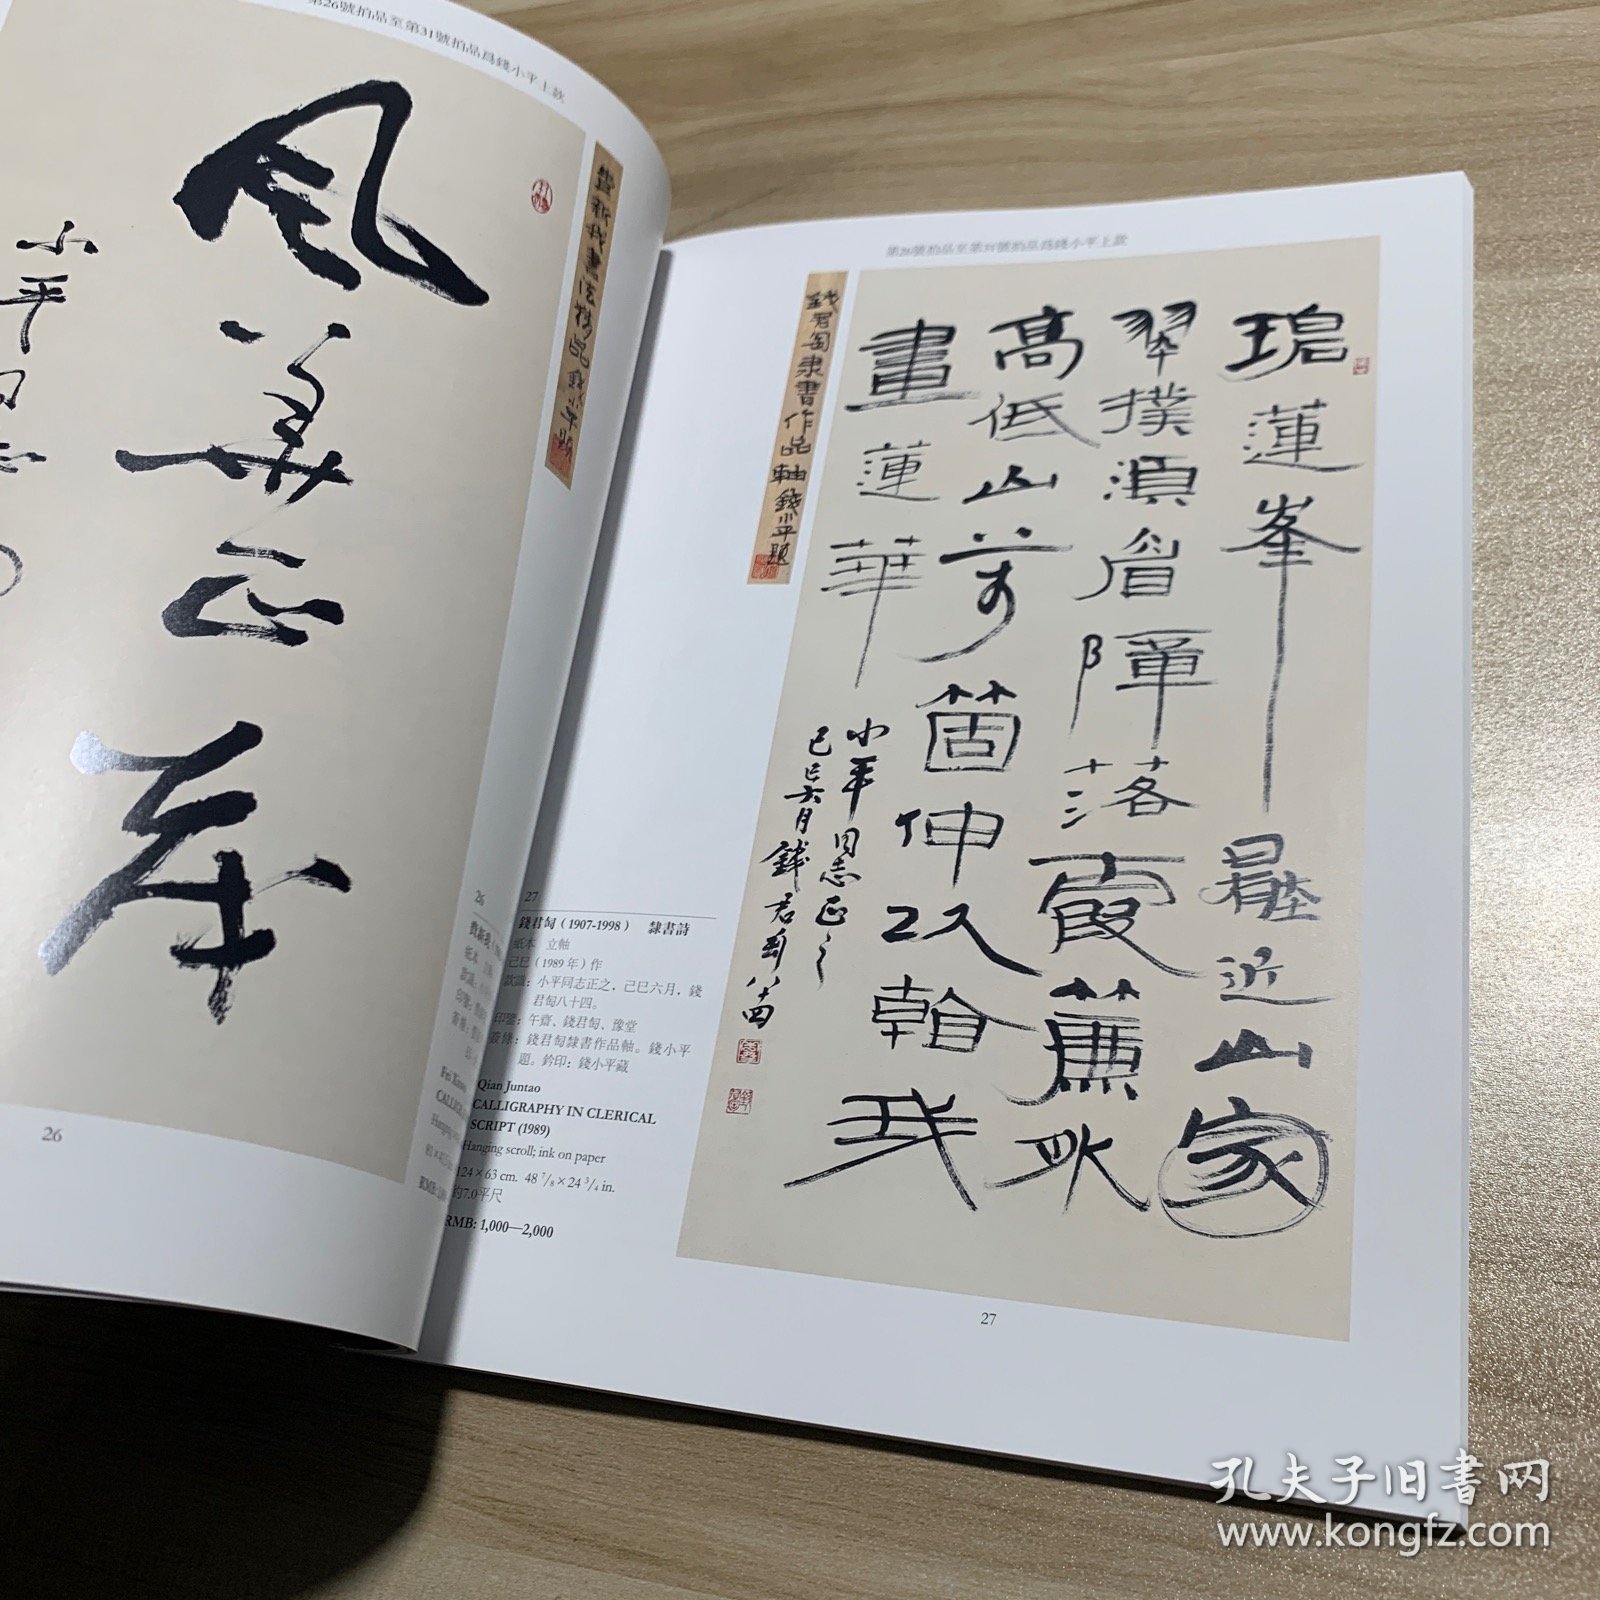 第26號拍品至第31號拍品爲錢小平上款
風華正茂
小平同志
費新我書法精品錢小平題
26
26
第26號拍品至第31號拍品爲錢小平上款
錢君匋隸書作品軸錢小平題
蓮峯 最近山家
翠撲須眉障落霞
高低山萬箇伸
畫蓮華
小平同志正之
己巳六月錢君匋八十四
27
錢君匋（1907-1998） 隸書詩
紙本 立軸
己巳（1989年）作
款識：小平同志正之，己巳六月，錢
君匋八十四。
印鑒：午齋、錢君匋、豫堂
簽條：錢君匋隸書作品軸。錢小平
題。鈐印：錢小平藏
Qian Juntao
CALLIGRAPHY IN CLERICAL
SCRIPT (1989)
Hanging scroll; ink on paper
124×63 cm. 48 7/8×24 3/4 in.
約7.0平尺
RMB: 1,000—2,000
27
孔夫子旧书网
www.kongfz.com